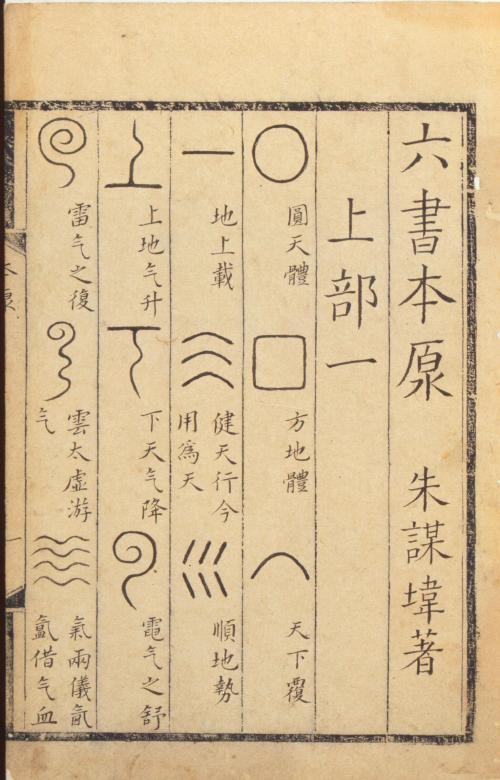 六書本原 朱謀㙔著
上部一
圓天體
方地體
天下覆
地上載
健天行今
用爲天
順地勢
上地气升
下天气降
電气之舒
雷气之復
雲太虛游
气
氣兩儀氤
氳借气血